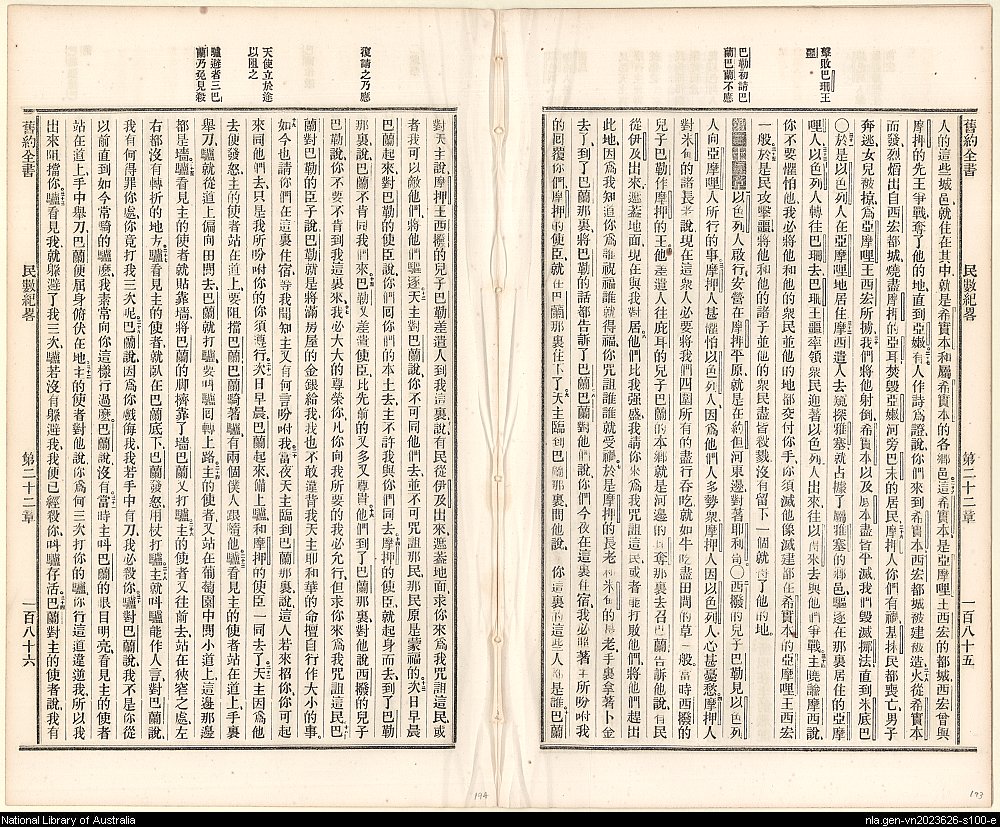 舊約全書 民數紀畧 第二十二章 一百八十五
擊敗巴珊王噩
巴勒初請巴蘭巴蘭不應
人的這些城邑就住在其中就是希實本和屬希實本的各鄉邑這希實本是亞摩哩王西宏的都城西宏曾與
摩押的先王爭戰奪了他的地直到亞嫩有人作詩為證說你們來到希實本西宏都城被建被造火從希實本
而發烈焰出自西宏都城燒盡摩押的亞耳焚毀亞嫩河旁巴末的居民摩押人你們有禍基抹民都喪亡男子
奔逃女兒被掠為亞摩哩王西宏所擄我們將他射倒希實本以及底本盡皆平滅我們毀滅挪法直到米底巴
〇於是以色列人在亞摩哩地居住摩西遣人去窺探雅塞就占據了屬雅塞的鄉邑驅逐在那裏居住的亞摩
哩人以色列人轉往巴珊去巴珊王噩率領衆民迎著以色列人出來往以得來去與他們爭戰主曉諭摩西說
你不要懼怕他我必將他和他的衆民並他的地都交付你手你須滅他像滅建都在希實本的亞摩哩王西宏
一般於是民攻擊噩將他和他的諸子並他的衆民盡皆殺戮沒有留下一個就得了他的地
以色列人啟行安營在摩押平原就是在約但河東邊對著耶利哥〇西撥的兒子巴勒見以色列
人向亞摩哩人所行的事摩押人甚懼怕以色列人因為他們人多勢衆摩押人因以色列人心甚憂愁摩押人
對米甸的諸長老說現在這衆人必要將我們四圍所有的盡行吞吃就如牛吃盡田間的草一般當時西撥的
兒子巴勒作摩押的王他差遣人往庇耳的兒子巴蘭的本鄉就是河邊的毘奪那裏去召巴蘭告訴他說有民
從伊及出來遮蓋地面現在與我對居他們比我强盛我請你來為我咒詛這民或者能打敗他們將他們趕出
此地因為我知道你為誰祝福誰就得福你咒詛誰誰就受禍於是摩押的長老和米甸的長老手裏拿著卜金
去了到了巴蘭那裏將巴勒的話都告訴了巴蘭巴蘭對他們說你們今夜在這裏住宿我必照著主所吩咐我
的囘覆你們摩押的使臣就在巴蘭那裏住下了天主臨到巴蘭那裏問他說你這裏的這些人都是誰巴蘭
復請之乃應
天使立於途以阻之
驢避者三巴蘭乃免見殺
對天主說摩押王西撥的兒子巴勒差遣人到我這裏說有民從伊及出來遮蓋地面求你來為我咒詛這民或
者我可以敵他們將他們驅逐天主對巴蘭說你不可同他們去並不可咒詛那民那民原是蒙福的次日早晨
巴蘭起來對巴勒的使臣說你們囘你們的本土去主不許我與你們同去摩押的使臣就起身而去到了巴勒
那裏說巴蘭不肯同我們來巴勒又差遣使臣比先前的又多又尊貴他們到了巴蘭那裏對他說西撥的兒子
巴勒說你不要不肯到我這裏來我必大大的尊榮你凡你向我所要的我必允行但求你來為我咒詛這民巴
蘭對巴勒的臣子說巴勒就是將滿房屋的金銀給我我也不敢違背我天主耶和華的命擅自行作大小的事
如今也請你們在這裏住宿等我問知主又有何言吩咐我當夜天主臨到巴蘭那裏說這人若來招你你可起
來同他們去只是我所吩咐你的你須遵行次日早晨巴蘭起來備上驢和摩押的使臣一同去了天主因為他
去便發怒主的使者站在道上要阻擋巴蘭巴蘭騎著驢有兩個僕人跟隨他驢看見主的使者站在道上手裏
舉刀驢就從道上偏向田間去巴蘭就打驢要叫驢囘轉上路主的使者又站在葡萄園中間小道上這邊那邊
都是墻驢看見主的使者就貼靠墻將巴蘭的脚擠靠了墻巴蘭又打驢主的使者又往前去站在狹窄之處左
右都沒有轉折的地方驢看見主的使者就臥在巴蘭底下巴蘭發怒用杖打驢主就叫驢能作人言對巴蘭說
我有何得罪你處你竟打我三次呢巴蘭說因為你戲侮我我若手中有刀我必殺你驢對巴蘭說我不是你從
以前直到如今常騎的驢麽我素常向你這樣行過麽巴蘭說沒有當時主叫巴蘭的眼目明亮看見主的使者
站在道上手中舉刀巴蘭便屈身俯伏在地主的使者對他說你為何三次打你的驢你行這道違逆我所以我
出來阻擋你驢看見我就躱避了我三次驢若沒有躱避我我便已經殺你叫驢存活巴蘭對主的使者說我有
舊約全書 民數紀畧 第二十二章 一百八十六
194
193
National Library of Australia
nla.gen-vn2023626-s100-e